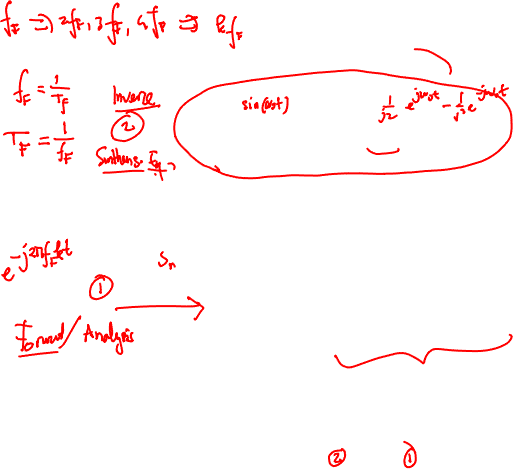 f_F ⇒ 2f_F, 3f_F, 4f_F ⇒ kf_F
f_F = 1/T_F
Inverse
②
T_F = 1/f_F
Synthesis Eq
sin(ω₀t)
1/j2 e^{jω₀t} - 1/j2 e^{-jω₀t}
e^{-j2πf_F kt}
①
S_n
Forward/Analysis
② ①